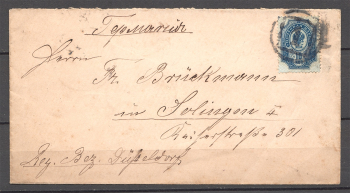 Германія
Herrn
Fr. Brückmann
in Solingen
Kaiserstraße 301
Reg. Bez. Düßeldorf